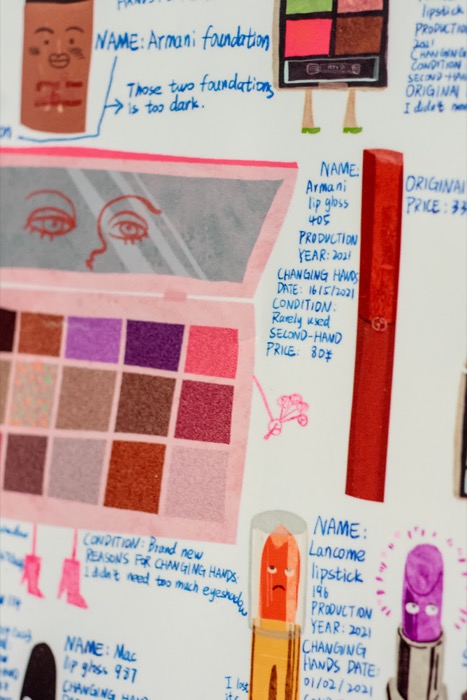 NAME: Armani foundation
Those two foundations
is too dark.
lipstick
PRODUCTION
2021
CHANGING
CONDITION
SECOND-HAND
ORIGINAL
I didn't
NAME:
Armani
lip gloss
405
PRODUCTION
YEAR: 2021
CHANGING HANDS
DATE: 16/5/2021
CONDITION:
Rarely used
SECOND-HAND
PRICE: 80¥
ORIGINAL
PRICE:
CONDITION: Brand new
REASONS FOR CHANGING HANDS:
I didn't need too much eyeshadow
NAME: Mac
lip gloss 937
CHANGING HAND
NAME:
Lancome
lipstick
196
PRODUCTION
YEAR: 2021
CHANGING
HANDS DATE:
01/02/202
I lost